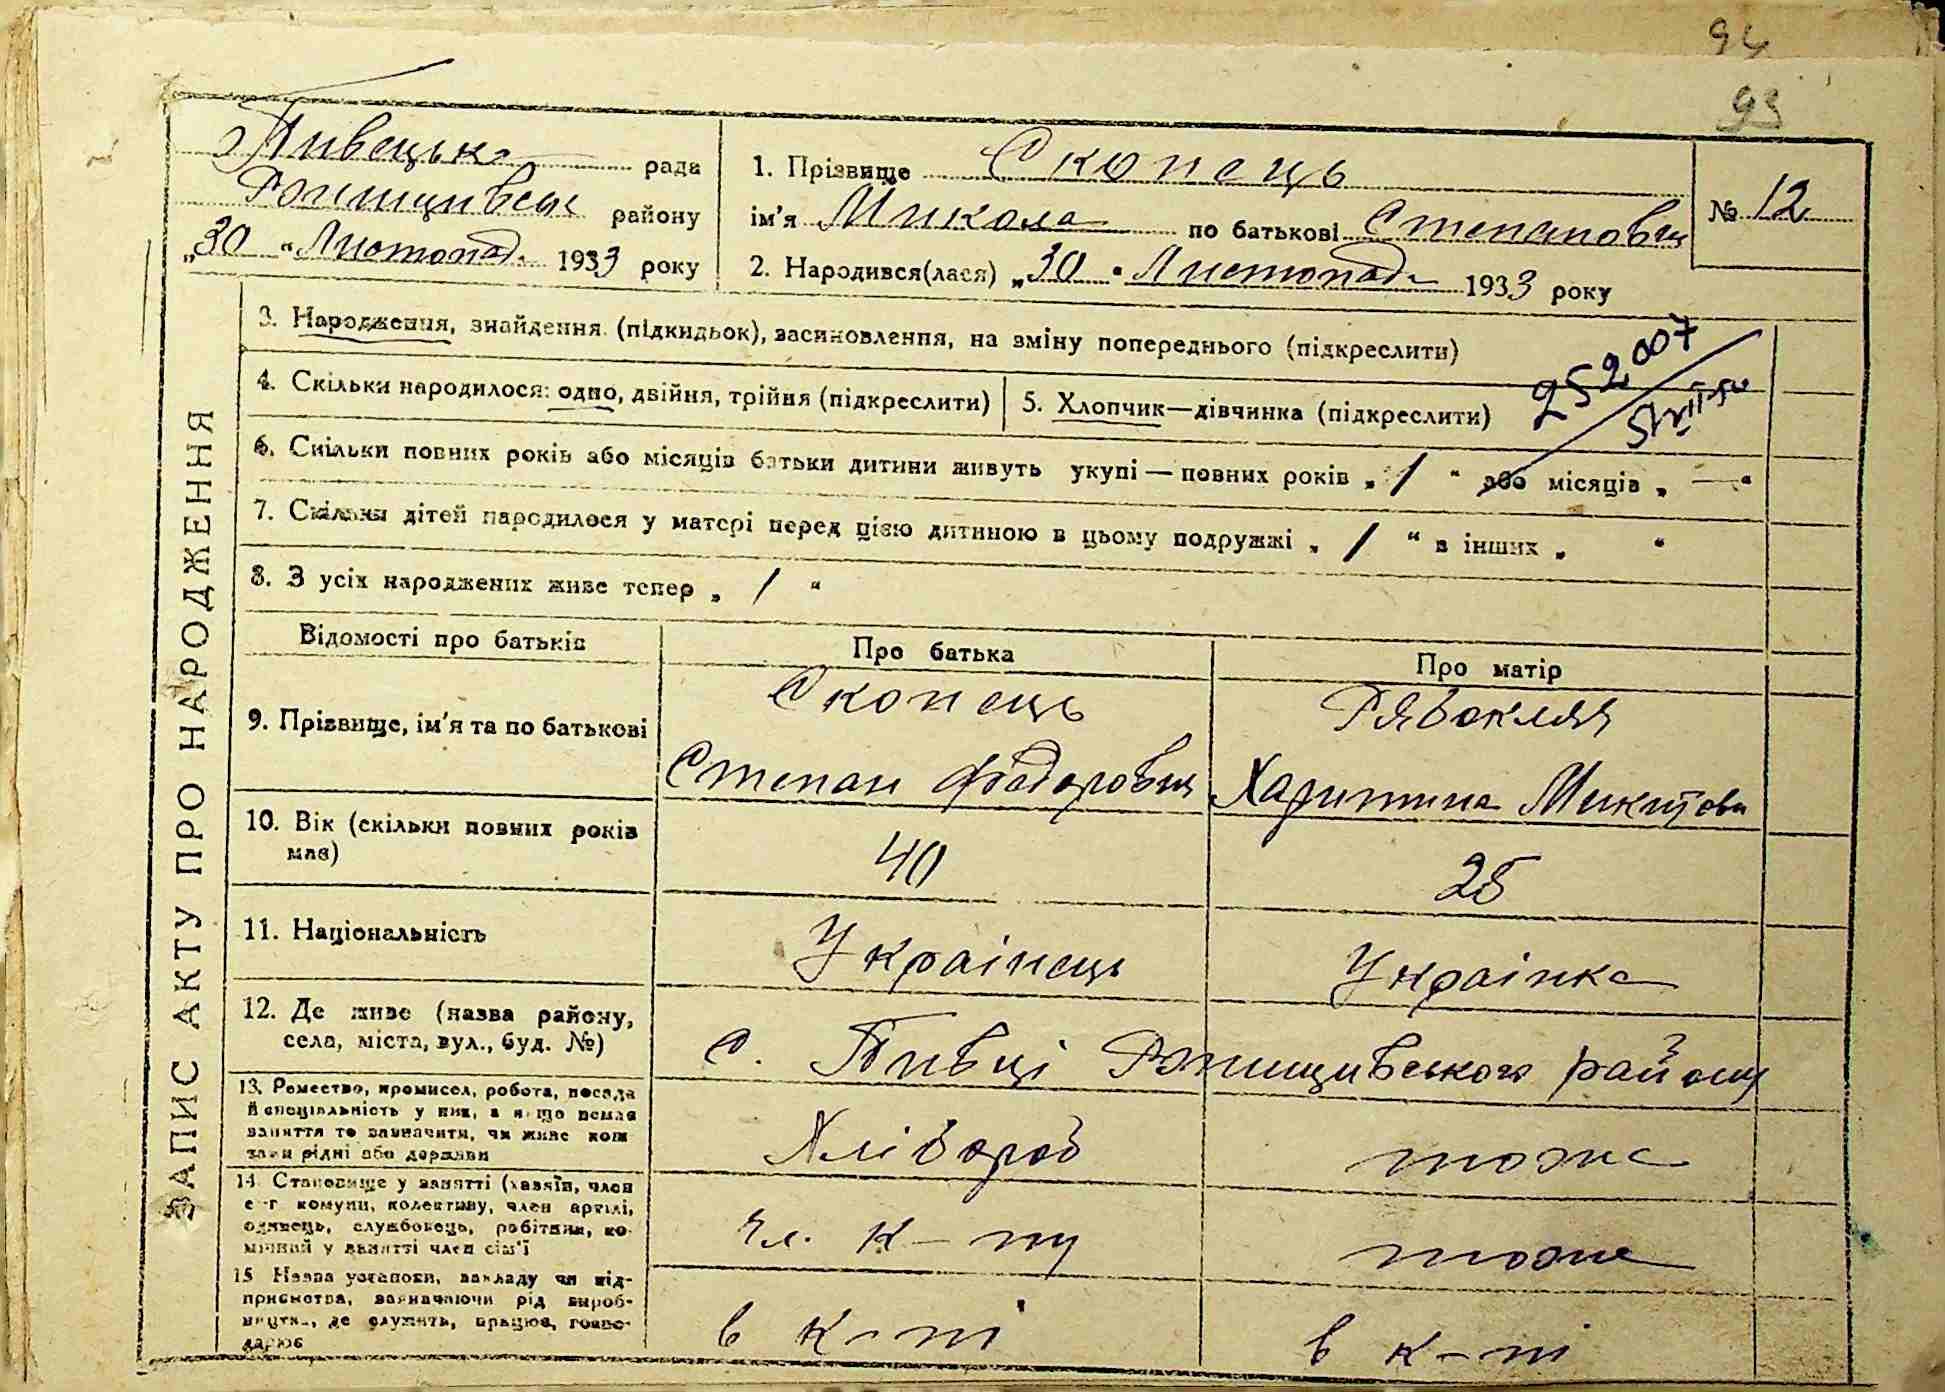 94
93
Пивецька рада
Ржищивськ району
„30 “ Листопад. 1933 року
1. Прізвище Скопець
ім'я Микола по батькові Степанович
2. Народився(лася) „30 “ Листопад. 1933 року
№ 12
ЗАПИС АКТУ ПРО НАРОДЖЕННЯ
3. Народження, знайдення (підкидьок), засиновлення, на зміну попереднього (підкреслити)
252007
4. Скільки народилося: одно, двійня, трійня (підкреслити)
5. Хлопчик—дівчинка (підкреслити)
6. Скільки повних років або місяців батьки дитини живуть укупі — повних років „ 1 “ або місяців „ — “
7. Скільки дітей народилося у матері перед цією дитиною в цьому подружжі „ 1 “ в інших „ “
8. З усіх народжених живе тепер „ 1 “
Відомості про батьків
Про батька
Про матір
9. Прізвище, ім'я та по батькові
Скопець
Степан Федорович
Рябокляч
Харитина Микитовн
10. Вік (скільки повних років
має)
40
25
11. Національність
Українець
Українка
12. Де живе (назва району,
села, міста, вул., буд. №)
с. Пивці Ржищивського району
13. Ремество, промисел, робота, посада
й спеціальність у них, а якщо немає
заняття то зазначити, чи живе кош
тами рідні або держави
Хлібороб
тоже
14. Становище у занятті (хазяїн, член
с-г комуни, колективу, член артілі,
одинець, службовець, робітник, по-
мічний у занятті член сім'ї
чл. к-пу
тоже
15 Назва установи, закладу чи під-
приємства, зазначаючи рід вироб-
ництва, де служить, працює, госпо-
дарює
в к-пі
в к-пі